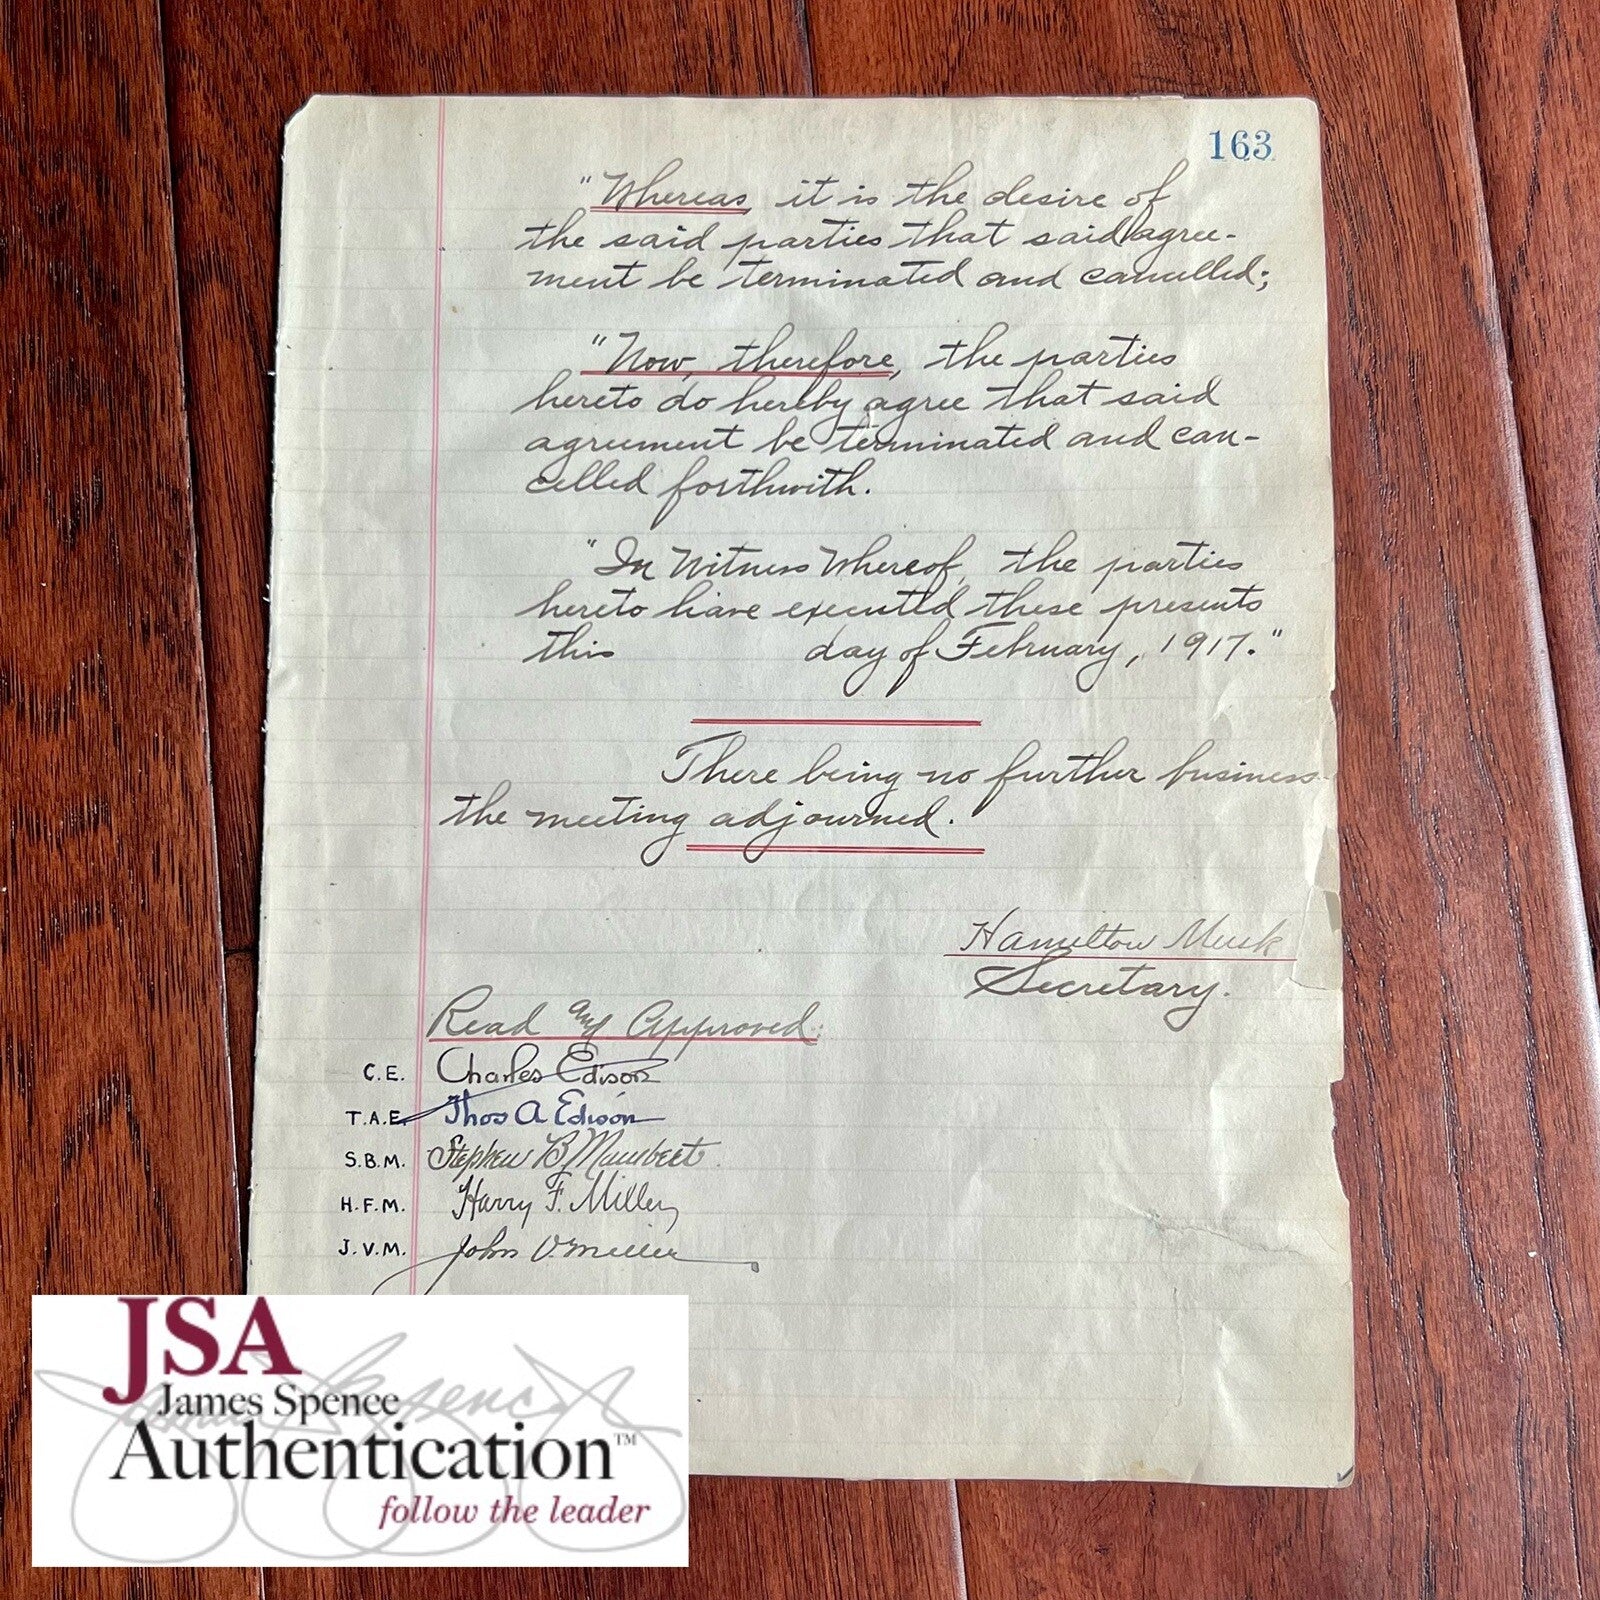 163
"Whereas, it is the desire of
the said parties that said agree-
ment be terminated and cancelled;
"Now, therefore, the parties
hereto do hereby agree that said
agreement be terminated and can-
celled forthwith.
"In Witness Whereof, the parties
hereto have executed these presents
this day of February, 1917."
There being no further business
the meeting adjourned.
Hamilton Musk
Secretary.
Read and Approved:
C.E. Charles Edison
T.A.E. Thos A Edison
S.B.M. Stephen B Mambert.
H.F.M. Harry F. Miller
J.V.M. John V. Miller
JSA
James Spence
Authentication™
follow the leader